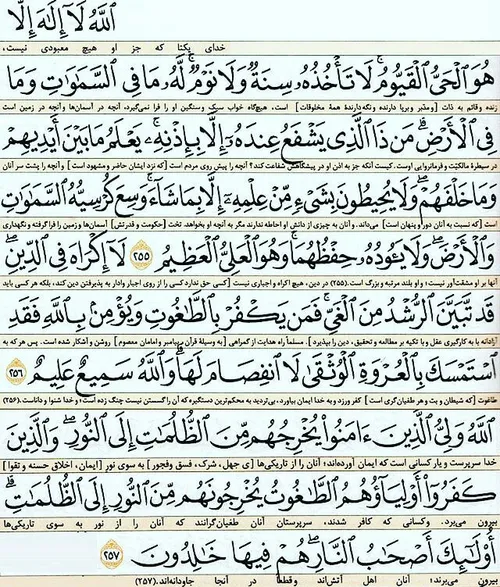 ٱللَّهُ لَآ إِلَٰهَ إِلَّا
خدای یکتا که جز او هیچ معبودی نیست،
هُوَ ٱلْحَىُّ ٱلْقَيُّومُ ۚ لَا تَأْخُذُهُۥ سِنَةٌ وَلَا نَوْمٌ ۚ لَّهُۥ مَا فِى ٱلسَّمَٰوَٰتِ وَمَا
زنده و قائم به ذات [و مدبّر و برپا دارنده و نگه دارندهٔ همهٔ مخلوقات] است، هیچ‌گاه خواب سبک و سنگین او را فرا نمی‌گیرد، آنچه در آسمان‌ها و آنچه در زمین است
فِى ٱلْأَرْضِ ۗ مَن ذَا ٱلَّذِى يَشْفَعُ عِندَهُۥٓ إِلَّا بِإِذْنِهِۦ ۚ يَعْلَمُ مَا بَيْنَ أَيْدِيهِمْ
در سیطرهٔ مالکیّت و فرمانروایی اوست. کیست آنکه جز به اذن او در پیشگاهش شفاعت کند؟ آنچه را پیش روی مردم است [که نزد ایشان حاضر و مشهود است] و آنچه را پشت سر آنان
وَمَا خَلْفَهُمْ ۖ وَلَا يُحِيطُونَ بِشَىْءٍ مِّنْ عِلْمِهِۦٓ إِلَّا بِمَا شَآءَ ۚ وَسِعَ كُرْسِيُّهُ ٱلسَّمَٰوَٰتِ
است [که نسبت به آنان دور و پنهان است] می‌داند. و آنان به چیزی از دانش او احاطه ندارند مگر به آنچه او بخواهد. تخت [حکومت و قدرتش] آسمان‌ها و زمین را فرا گرفته و نگهداری
وَٱلْأَرْضَ ۖ وَلَا يَـُٔودُهُۥ حِفْظُهُمَا ۚ وَهُوَ ٱلْعَلِىُّ ٱلْعَظِيمُ ۝٢٥٥ لَآ إِكْرَاهَ فِى ٱلدِّينِ ۖ
آنها بر او مشقّت‌آور نیست؛ و او بلند مرتبه و بزرگ است.(۲۵۵) در دین، هیچ اکراه و اجباری نیست [کسی حق ندارد کسی را از روی اجبار وادار به پذیرفتن دین کند، بلکه هر کسی باید
قَد تَّبَيَّنَ ٱلرُّشْدُ مِنَ ٱلْغَىِّ ۚ فَمَن يَكْفُرْ بِٱلطَّٰغُوتِ وَيُؤْمِنۢ بِٱللَّهِ فَقَدِ
آزادانه با به کارگیری عقل و با تکیه بر مطالعه و تحقیق، دین را بپذیرد]. مسلماً راه هدایت از گمراهی [به وسیلهٔ قرآن، پیامبر و امامان معصوم] روشن و آشکار شده است. پس هر که به
ٱسْتَمْسَكَ بِٱلْعُرْوَةِ ٱلْوُثْقَىٰ لَا ٱنفِصَامَ لَهَا ۗ وَٱللَّهُ سَمِيعٌ عَلِيمٌ ۝٢٥٦
طاغوت [که شیطان و بت و هر طغیان‌گری است] کفر ورزد و به خدا ایمان بیاورد، بی‌تردید به محکم‌ترین دستگیره که آن را گسستن نیست چنگ زده است؛ و خدا شنوا و داناست.(۲۵۶)
ٱللَّهُ وَلِىُّ ٱلَّذِينَ ءَامَنُوا۟ يُخْرِجُهُم مِّنَ ٱلظُّلُمَٰتِ إِلَى ٱلنُّورِ ۖ وَٱلَّذِينَ
خدا سرپرست و یار کسانی است که ایمان آورده‌اند؛ آنان را از تاریکی‌ها [ی جهل، شرک، فسق و فجور] به سوی نور [ایمان، اخلاق حسنه و تقوا]
كَفَرُوٓا۟ أَوْلِيَآؤُهُمُ ٱلطَّٰغُوتُ يُخْرِجُونَهُم مِّنَ ٱلنُّورِ إِلَى ٱلظُّلُمَٰتِ ۗ
بیرون می‌برد. و کسانی که کافر شدند، سرپرستان آنان طغیان‌گرانند که آنان را از نور به سوی تاریکی‌ها
أُو۟لَٰٓئِكَ أَصْحَٰبُ ٱلنَّارِ ۖ هُمْ فِيهَا خَٰلِدُونَ ۝٢٥٧
بیرون می‌برند؛ آنان اهل آتش‌اند و قطعاً در آنجا جاودانه‌اند.(۲۵۷)